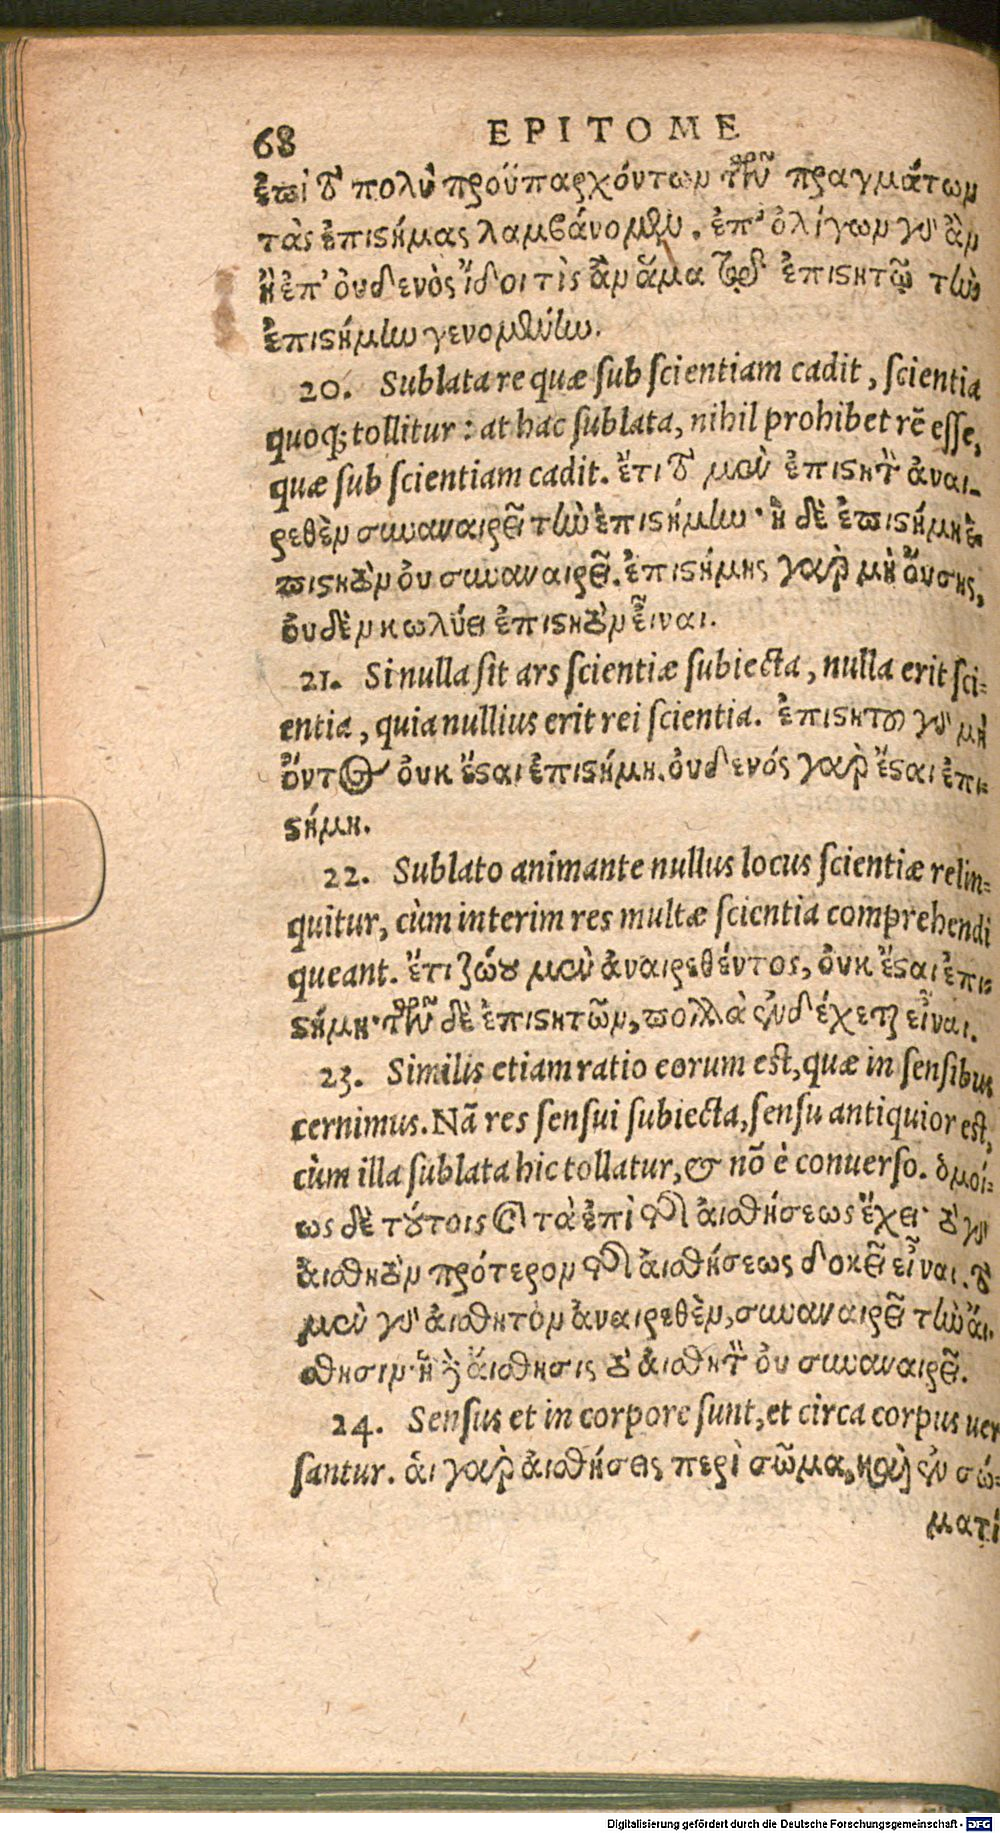 68 EPITOME
ἐπὶ τὸ πολὺ προϋπαρχόντων τῶν πραγμάτων
τὰς ἐπιστήμας λαμβάνομεν. ἐπ' ὀλίγων γὰρ ἂν
ἢ ἐπ' οὐδενὸς ἴδοι τὶς ἂν ἅμα τῷ ἐπιστητῷ τὴν
ἐπιστήμην γενομένην.
20. Sublata re quæ sub scientiam cadit, scientia
quoq; tollitur: at hac sublata, nihil prohibet rē esse,
quæ sub scientiam cadit. ἔτι τὸ μὲν ἐπιστητὸν ἀναι-
ρεθὲν συναναιρεῖ τὴν ἐπιστήμην· ἡ δὲ ἐπιστήμη ἐ-
πιστητὸν οὐ συναναιρεῖ. ἐπιστήμης γὰρ μὴ οὔσης,
οὐδὲν κωλύει ἐπιστητὸν εἶναι.
21. Si nulla sit ars scientiæ subiecta, nulla erit sci-
entia, quia nullius erit rei scientia. ἐπιστητοῦ γὰρ μὴ
ὄντος οὐκ ἔσαι ἐπιστήμη. οὐδενός γὰρ ἔσαι ἐπι-
στήμη.
22. Sublato animante nullus locus scientiæ relin-
quitur, cùm interim res multæ scientia comprehendi
queant. ἔτι ζώου μὲν ἀναιρεθέντος, οὐκ ἔσαι ἐπι-
στήμη· τῶν δὲ ἐπιστητῶν, πολλὰ ἐνδέχεται εἶναι.
23. Similis etiam ratio eorum est, quæ in sensibus
cernimus. Nā res sensui subiecta, sensu antiquior est,
cùm illa sublata hic tollatur, & nō è conuerso. ὁμοί-
ως δὲ τούτοις καὶ τὰ ἐπὶ τῆς αἰσθήσεως ἔχει· τὸ γὰρ
αἰσθητὸν πρότερον τῆς αἰσθήσεως δοκεῖ εἶναι. τὸ
μὲν γὰρ αἰσθητὸν ἀναιρεθὲν, συναναιρεῖ τὴν αἴ-
σθησιν· ἡ δὲ αἴσθησις τὸ αἰσθητὸν οὐ συναναιρεῖ.
24. Sensus et in corpore sunt, et circa corpus uer
santur. ἁι γὰρ αἰσθήσεις περὶ σῶμα, καὶ ἐν σώ-
ματί
Digitalisierung gefördert durch die Deutsche Forschungsgemeinschaft - DFG